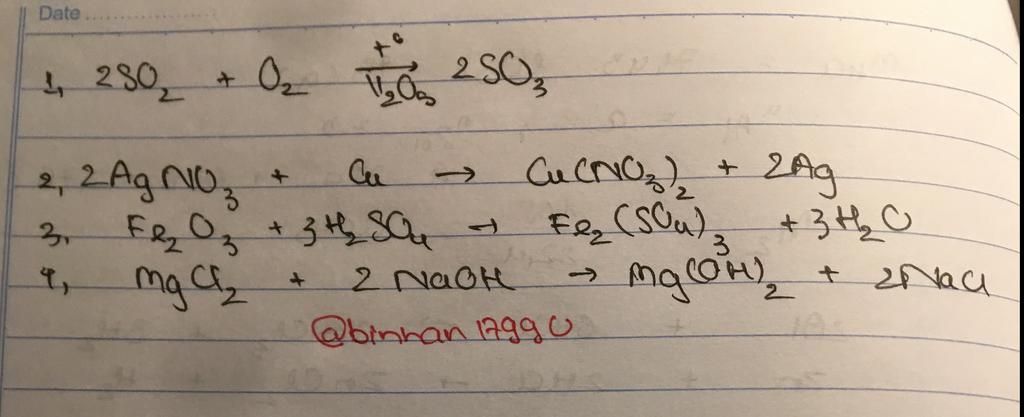 Date
1, 2SO₂ + O₂ →(t°, V₂O₅) 2SO₃
2, 2AgNO₃ + Cu → Cu(NO₃)₂ + 2Ag
3, Fe₂O₃ + 3H₂SO₄ → Fe₂(SO₄)₃ + 3H₂O
4, MgCl₂ + 2NaOH → Mg(OH)₂ + 2NaCl
@binhan1799O